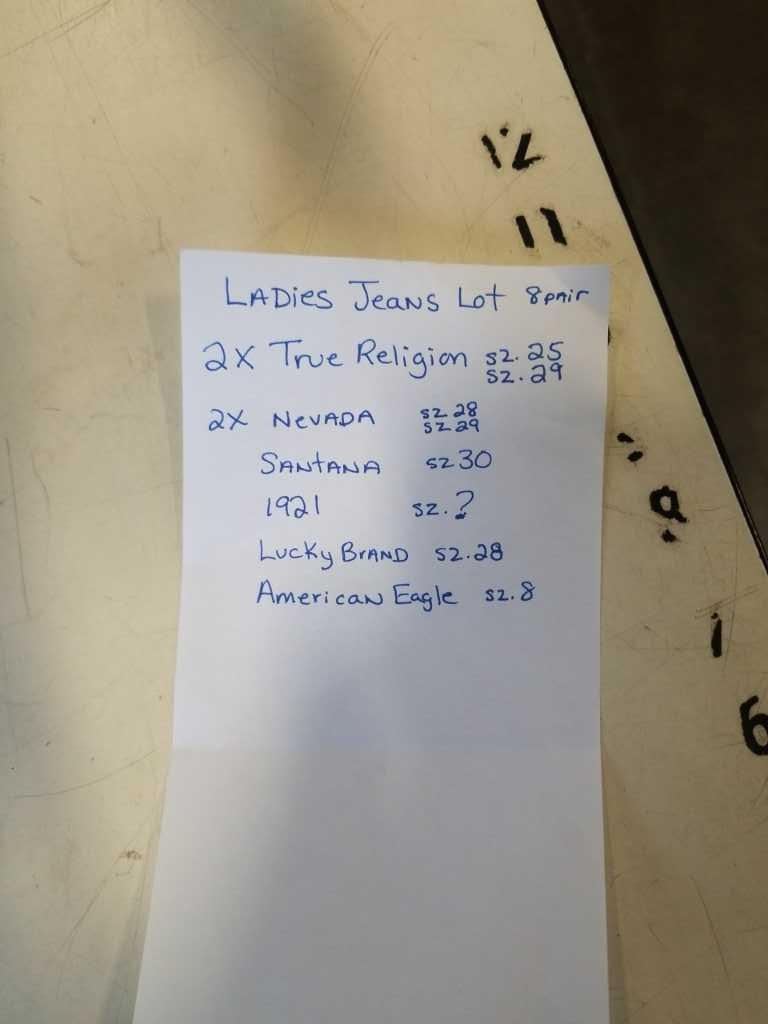 12
11
LADies JeANS Lot 8 pair
2X True Religion sz. 25
sz. 29
2X NeVADA sz 28
sz 29
SANtANA sz 30
1921 sz. ?
Lucky BrAND sz. 28
AmericaN Eagle sz. 8
6